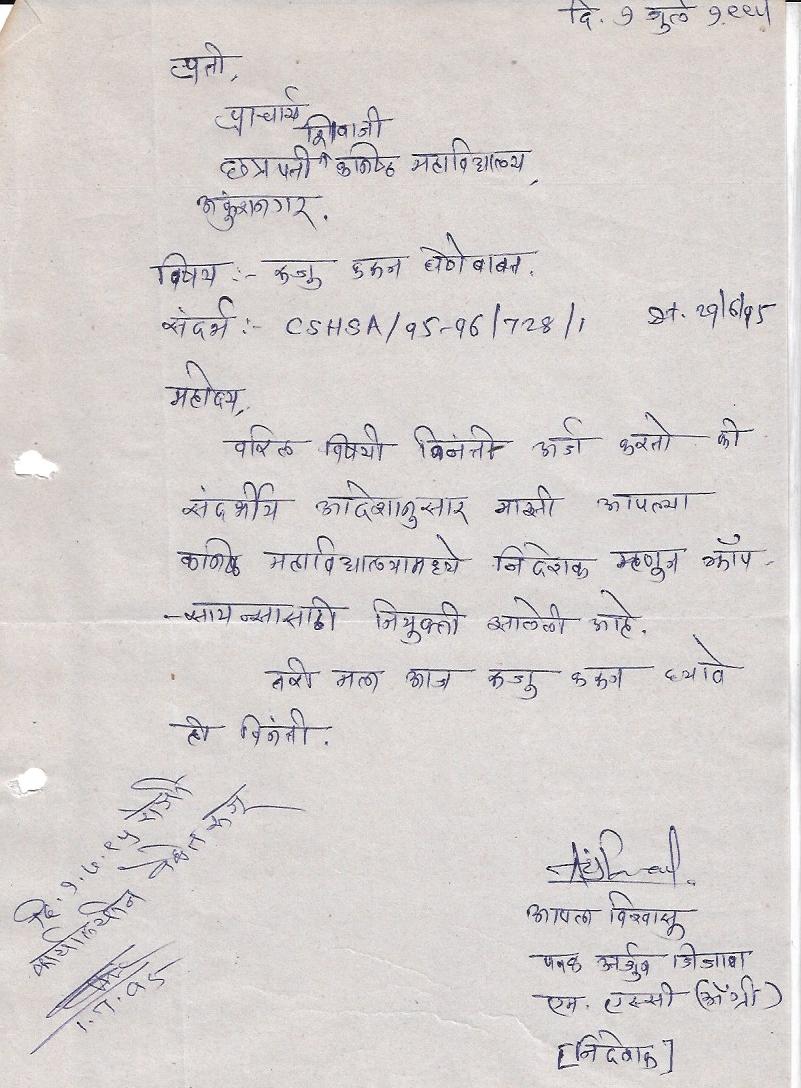 दि. १ जुलै १९९५
प्रती,
प्राचार्य
शिवाजी
छत्रपती कनिष्ठ महाविद्यालय,
अंकुशनगर.
विषय :- रूजु करून घेणेबाबत.
संदर्भ :- CSHSA/95-96/728/1
महोदय,
वरिल विषयी विनंती अर्ज करतो की
संदर्भीय आदेशानुसार माझी आपल्या
कनिष्ठ महाविद्यालयामध्ये निदेशक म्हणून क्रॉप
-सायन्सासाठी नियुक्ती झालेली आहे.
तरी मला आज रूजु करून घ्यावे
ही विनंती.
दि. १.७.९५ रोजी
कार्यालयीन वेळेत रूजु
1.7.95
आपला विश्वासु
अर्जुन
एम. एस्सी (अॅग्री)
[निदेशक]